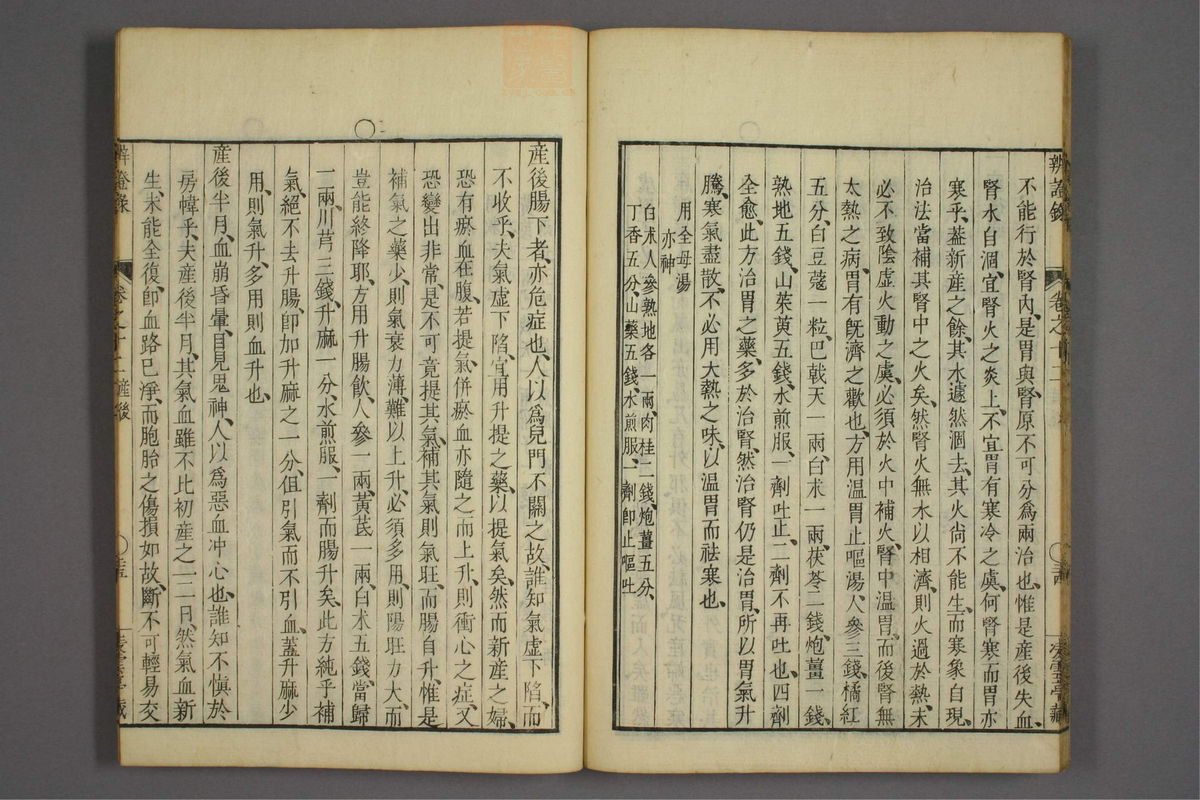 辨證錄 卷之十二
不能行於腎內是胃與腎原不可分爲兩治也惟是產後失血
腎水自涸宜腎火之炎上不宜胃有寒冷之虞何腎寒而胃亦
寒乎葢新產之餘其水遽然涸去其火尙不能生而寒象自現
治法當補其腎中之火矣然腎火無水以相濟則火過於熱未
必不致陰虛火動之虞必須於水中補火腎中溫胃而後腎無
太熱之病胃有旣濟之歡也方用溫胃止嘔湯人參三錢橘紅
五分白豆蔻一粒巴戟天一兩白术一兩茯苓二錢炮薑一錢
熟地五錢山茱萸五錢水煎服一劑吐止二劑不再吐也四劑
全愈此方治胃之藥多於治腎然治腎仍是治胃所以胃氣升
騰寒氣盡散不必用大熱之味以溫胃而祛寒也
用全母湯
亦神
白朮人參熟地各一兩肉桂二錢炮薑五分
丁香五分山藥五錢水煎服一劑卽止嘔吐
產後腸下者亦危症也人以爲兒門不關之故誰知氣虛下陷而
不收乎夫氣虛下陷宜用升提之藥以提氣矣然而新產之婦
恐有瘀血在腹若提氣併瘀血亦隨之而上升則衝心之症又
恐變出非常是不可竟提其氣補其氣則氣旺而腸自升惟是
補氣之藥少則氣衰力薄難以上升必須多用則陽旺力大而
豈能終降耶方用升腸飲人參一兩黃芪一兩白朮五錢當歸
一兩川芎三錢升麻一分水煎服一劑而腸升矣此方純乎補
氣絕不去升腸卽加升麻之一分但引氣而不引血蓋升麻少
用則氣升多用則血升也
產後半月血崩昏暈目見鬼神人以爲惡血冲心也誰知不愼於
房幃乎夫產後半月其氣血雖不比初產之一二日然氣血新
生未能全復卽血路已淨而胞胎之傷損如故斷不可輕易交
錄 卷之十二 產後